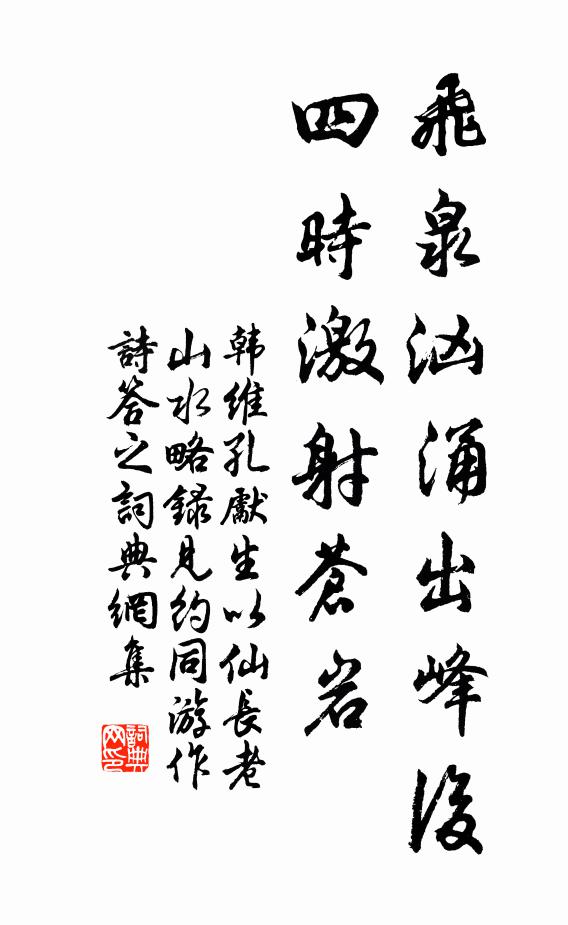 飛泉洶涌出峰後
四時激射蒼岩
韩維孔獻生以仙長老
山水略録見約同游作
詩答之詞典網集
詞典
网印